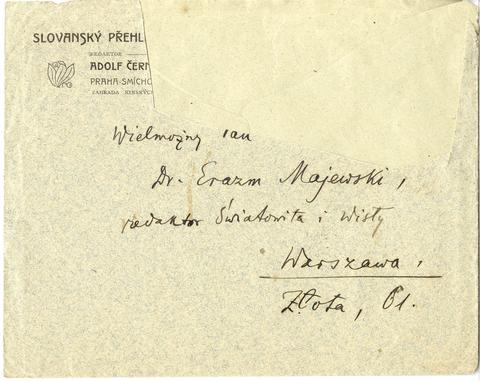 SLOVANSKÝ PŘEHL
REDAKTOR
ADOLF ČERN
PRAHA-SMÍCHO
ZAHRADA KINSKÝC
Wielmożny Pan
Dr. Erazm Majewski,
redaktor Światowita i Wisły
Warszawa.
Złota, 61.